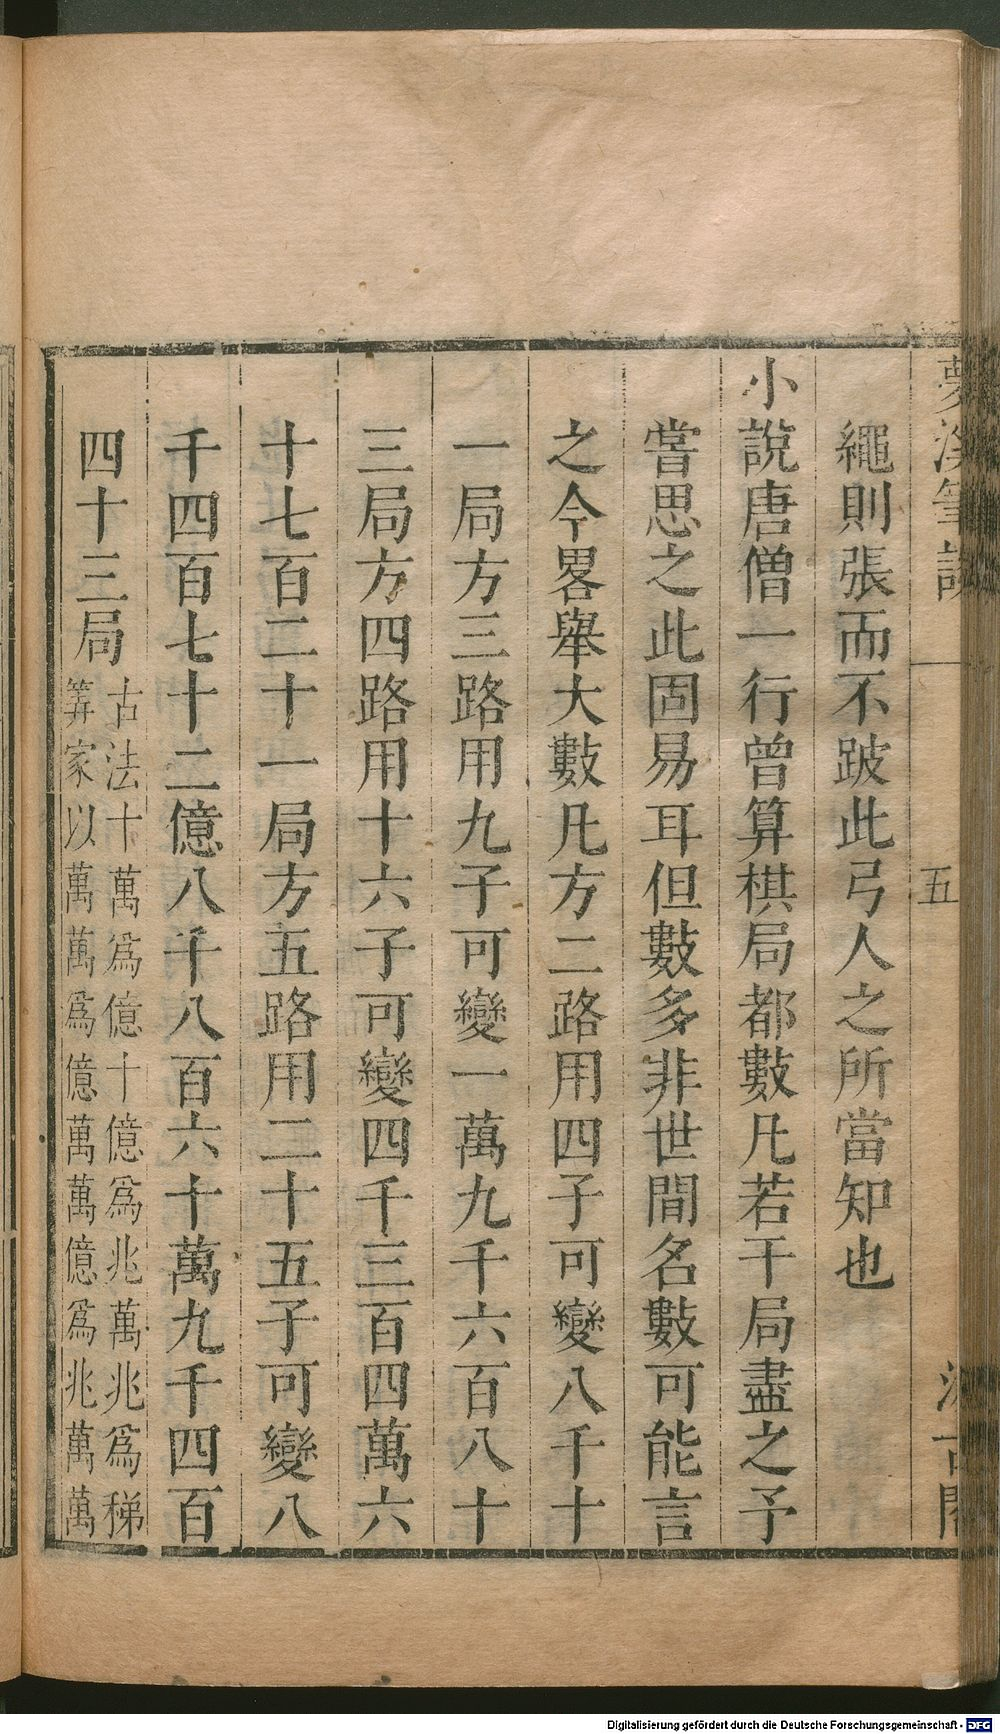 夢溪筆談
五
繩則張而不跛此弓人之所當知也
小說唐僧一行曾算棋局都數凡若干局盡之予
嘗思之此固易耳但數多非世間名數可能言
之今畧舉大數凡方二路用四子可變八千十
一局方三路用九子可變一萬九千六百八十
三局方四路用十六子可變四千三百四萬六
十七百二十一局方五路用二十五子可變八
千四百七十二億八千八百六十萬九千四百
四十三局
古法十萬爲億十億爲兆萬兆爲稊
筭家以萬萬爲億萬萬億爲兆萬萬
Digitalisierung gefördert durch die Deutsche Forschungsgemeinschaft - DFG